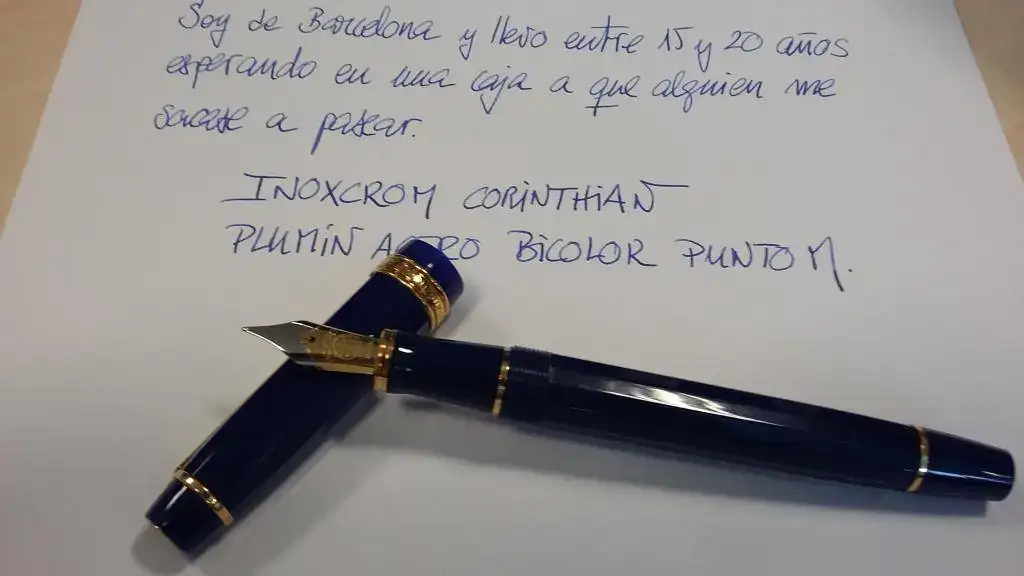 Soy de Barcelona y llevo entre 15 y 20 años
esperando en una caja a que alguien me
sacase a pasear.
INOXCROM CORINTHIAN
PLUMIN ACERO BICOLOR PUNTO M.